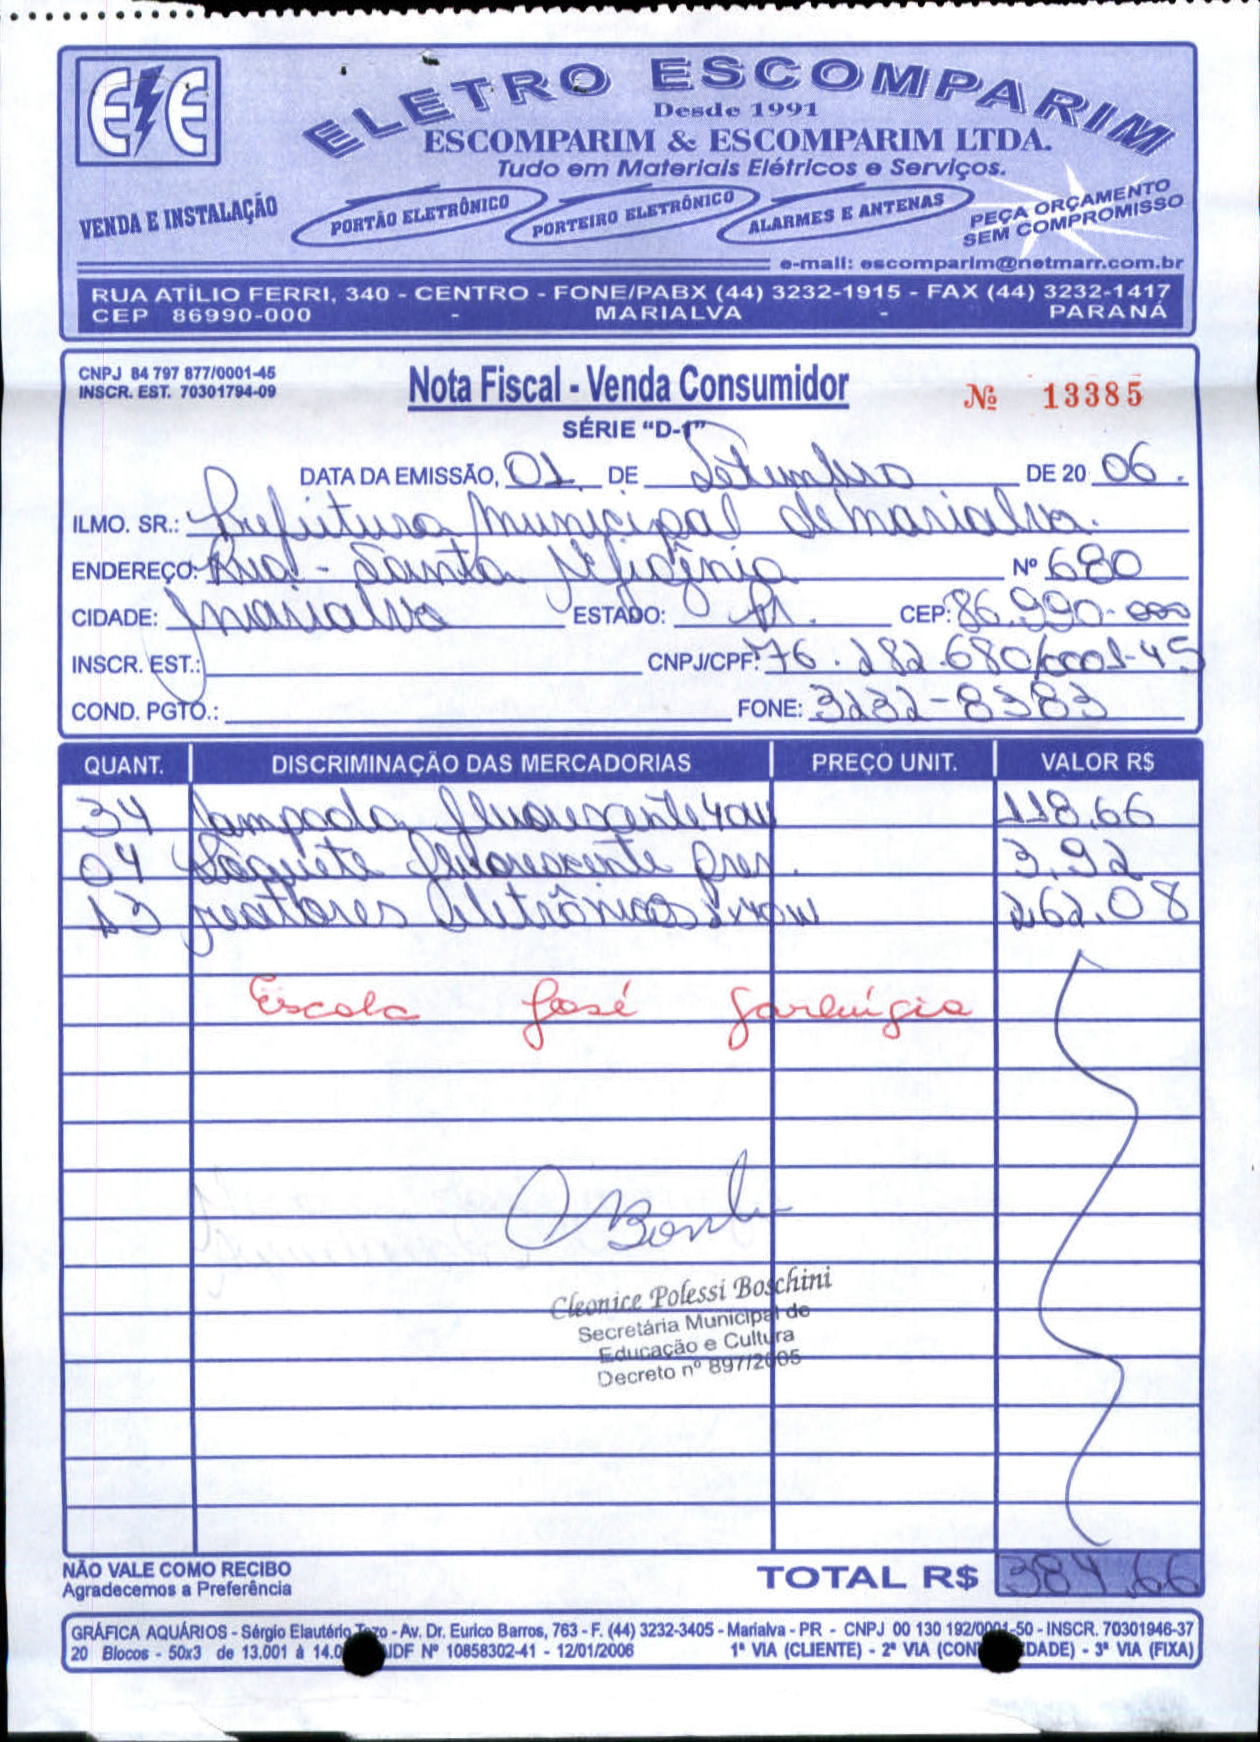 EE
ELETRO ESCOMPARIM
Desde 1991
ESCOMPARIM & ESCOMPARIM LTDA.
Tudo em Materiais Elétricos e Serviços.
VENDA E INSTALAÇÃO
PORTÃO ELETRÔNICO
PORTEIRO ELETRÔNICO
ALARMES E ANTENAS
PEÇA ORÇAMENTO
SEM COMPROMISSO
e-mail: escomparim@netmarr.com.br
RUA ATÍLIO FERRI, 340 - CENTRO - FONE/PABX (44) 3232-1915 - FAX (44) 3232-1417
CEP 86990-000 - MARIALVA - PARANÁ
CNPJ 84 797 877/0001-45
INSCR. EST. 70301794-09
Nota Fiscal - Venda Consumidor
Nº 13385
SÉRIE "D-1"
DATA DA EMISSÃO, 01 DE Setembro DE 20 06.
ILMO. SR.: Prefeitura Municipal de Marialva.
ENDEREÇO: Rua - Santa Efigênia Nº 680
CIDADE: Marialva ESTADO: Pr. CEP: 86.990-000
INSCR. EST.: CNPJ/CPF: 76.282.680/0001-45
COND. PGTO.: FONE: 3232 8383
QUANT. DISCRIMINAÇÃO DAS MERCADORIAS PREÇO UNIT. VALOR R$
34 Lampada fluorescente 40w 118,66
04 Soquete fluorescente pres. 3,92
13 reatores eletrônicos 2x40w 262,08
Escola José Garbúgio
Cleonice Polessi Boschini
Secretária Municipal de
Educação e Cultura
Decreto nº 897/2005
NÃO VALE COMO RECIBO
Agradecemos a Preferência
TOTAL R$ 384,66
GRÁFICA AQUÁRIOS - Sérgio Elautério - Av. Dr. Eurico Barros, 763 - F. (44) 3232-3405 - Marialva - PR - CNPJ 00 130 192/0001-50 - INSCR. 70301946-37
20 Blocos - 50x3 de 13.001 à 14.0 IDF Nº 10858302-41 - 12/01/2006 1ª VIA (CLIENTE) - 2ª VIA (CON DADE) - 3ª VIA (FIXA)